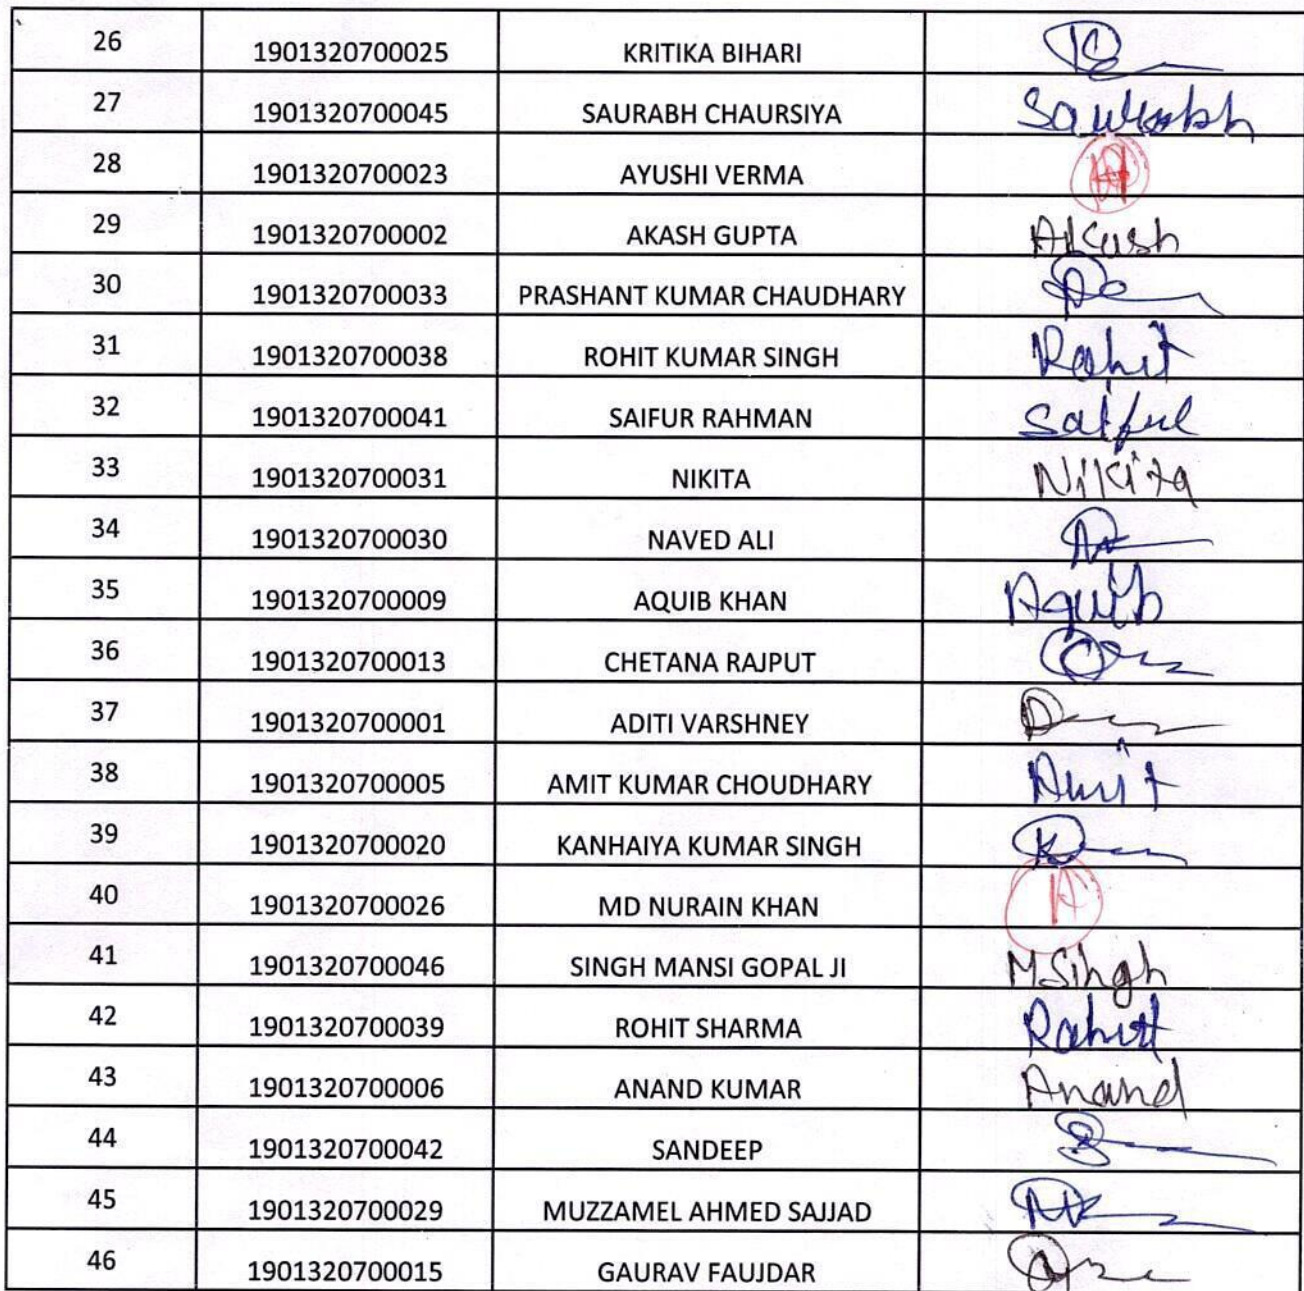 26 1901320700025 KRITIKA BIHARI
27 1901320700045 SAURABH CHAURSIYA Saurabh
28 1901320700023 AYUSHI VERMA
29 1901320700002 AKASH GUPTA Akash
30 1901320700033 PRASHANT KUMAR CHAUDHARY
31 1901320700038 ROHIT KUMAR SINGH Rohit
32 1901320700041 SAIFUR RAHMAN
33 1901320700031 NIKITA Nikita
34 1901320700030 NAVED ALI
35 1901320700009 AQUIB KHAN Aquib
36 1901320700013 CHETANA RAJPUT
37 1901320700001 ADITI VARSHNEY
38 1901320700005 AMIT KUMAR CHOUDHARY Amit
39 1901320700020 KANHAIYA KUMAR SINGH
40 1901320700026 MD NURAIN KHAN A
41 1901320700046 SINGH MANSI GOPAL JI MSingh
42 1901320700039 ROHIT SHARMA Rohit
43 1901320700006 ANAND KUMAR Anand
44 1901320700042 SANDEEP
45 1901320700029 MUZZAMEL AHMED SAJJAD
46 1901320700015 GAURAV FAUJDAR